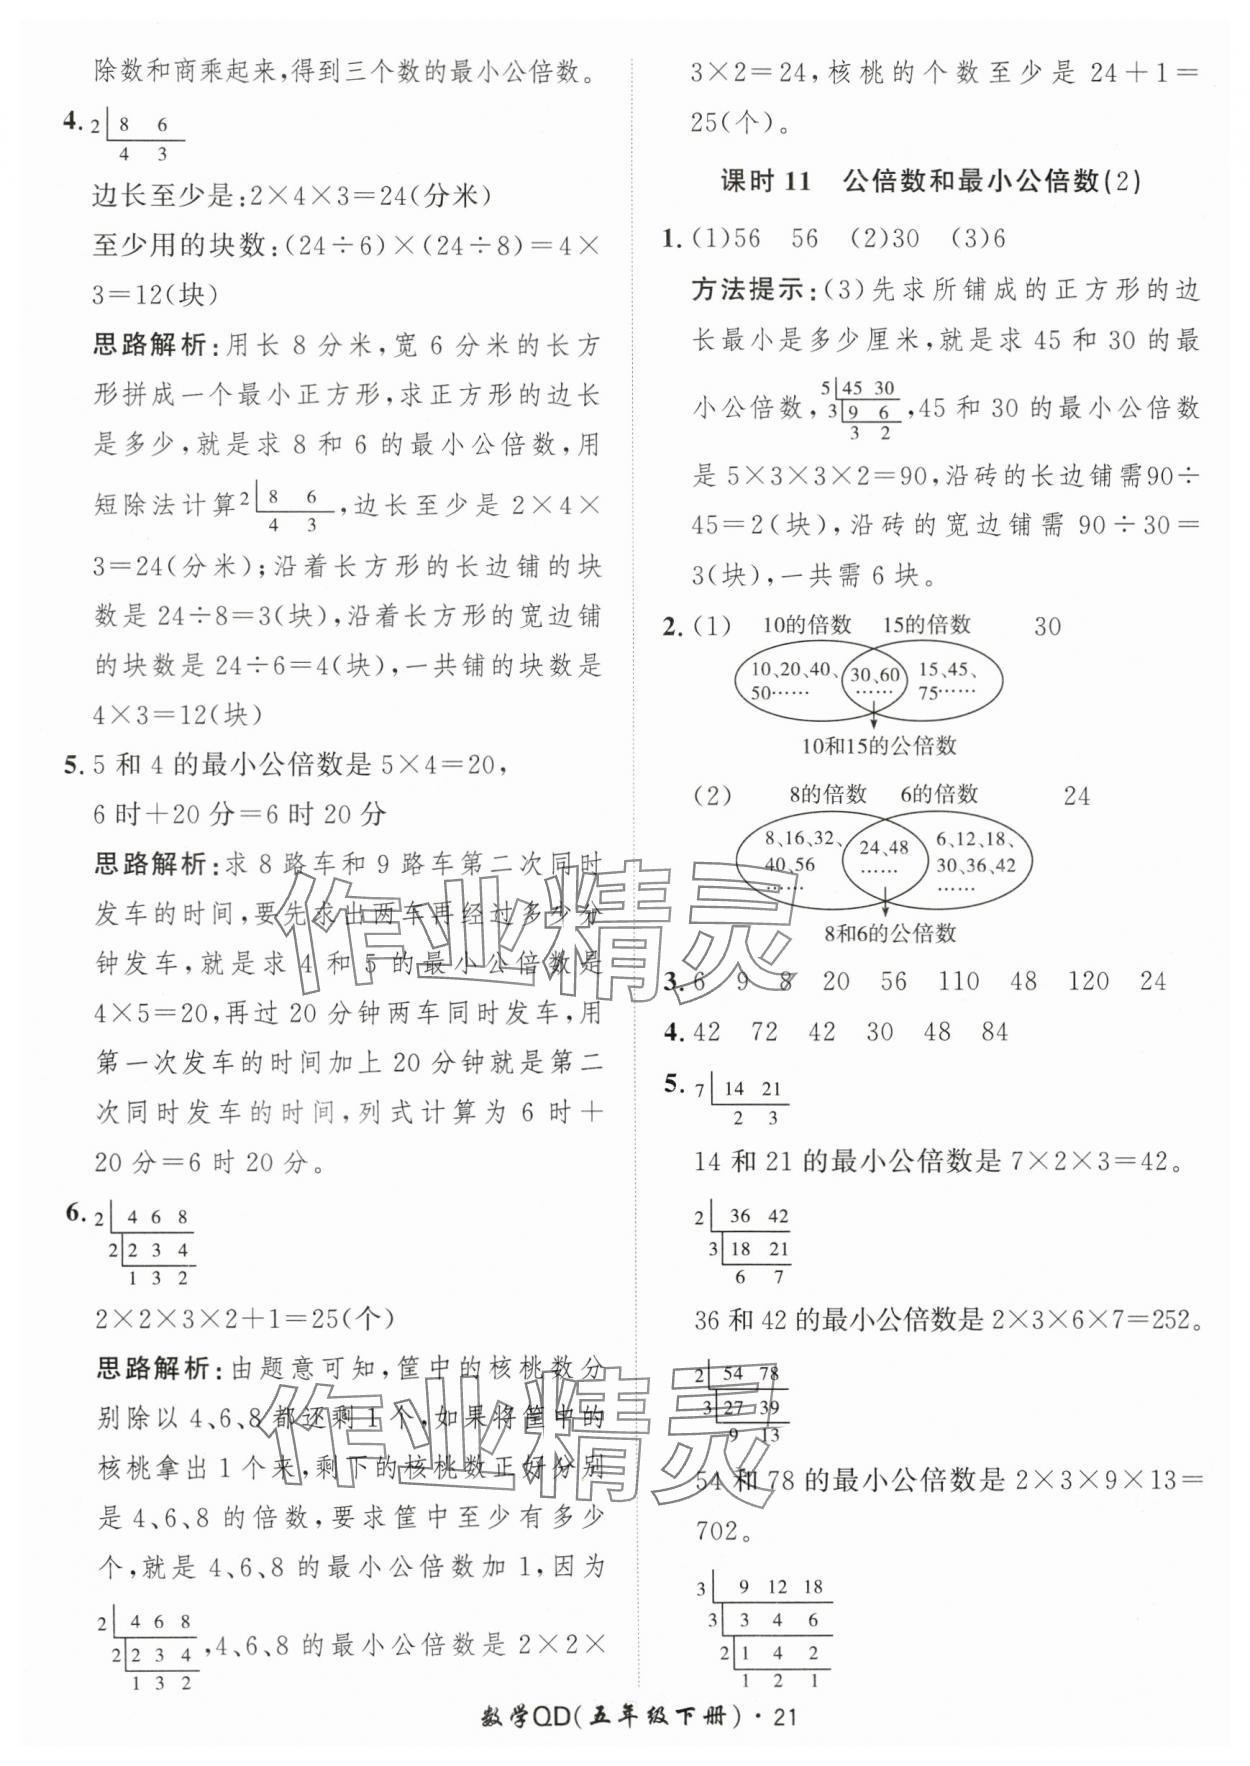 除数和商乘起来,得到三个数的最小公倍数。
4. 2 8 6
4 3
边长至少是:2×4×3=24(分米)
至少用的块数:(24÷6)×(24÷8)=4×
3=12(块)
思路解析:用长 8 分米,宽 6 分米的长方
形拼成一个最小正方形,求正方形的边长
是多少,就是求 8 和 6 的最小公倍数,用
短除法计算 2 8 6 ,边长至少是 2×4×
4 3
3=24(分米);沿着长方形的长边铺的块
数是 24÷8=3(块),沿着长方形的宽边铺
的块数是 24÷6=4(块),一共铺的块数是
4×3=12(块)
5. 5 和 4 的最小公倍数是 5×4=20,
6 时+20 分=6 时 20 分
思路解析:求 8 路车和 9 路车第二次同时
发车的时间,要先求出两车再经过多少分
钟发车,就是求 4 和 5 的最小公倍数是
4×5=20,再过 20 分钟两车同时发车,用
第一次发车的时间加上 20 分钟就是第二
次同时发车的时间,列式计算为 6 时+
20 分=6 时 20 分。
6. 2 4 6 8
2 2 3 4
1 3 2
2×2×3×2+1=25(个)
思路解析:由题意可知,筐中的核桃数分
别除以 4、6、8 都还剩 1 个,如果将筐中的
核桃拿出 1 个来,剩下的核桃数正好分别
是 4、6、8 的倍数,要求筐中至少有多少
个,就是 4、6、8 的最小公倍数加 1,因为
2 4 6 8
2 2 3 4 ,4、6、8 的最小公倍数是 2×2×
1 3 2
3×2=24,核桃的个数至少是 24+1=
25(个)。
课时 11 公倍数和最小公倍数(2)
1. (1)56 56 (2)30 (3)6
方法提示:(3)先求所铺成的正方形的边
长最小是多少厘米,就是求 45 和 30 的最
5 45 30
小公倍数, 3 9 6 ,45 和 30 的最小公倍数
3 2
是 5×3×3×2=90,沿砖的长边铺需90÷
45=2(块),沿砖的宽边铺需 90÷30=
3(块),一共需 6 块。
2. (1) 10的倍数 15的倍数 30
10、20、40、 30、60 15、45、
50…… …… 75……
10和15的公倍数
(2) 8的倍数 6的倍数 24
8、16、32、 24、48 6、12、18、
40、56 …… 30、36、42
…… ……
8和6的公倍数
3. 6 9 8 20 56 110 48 120 24
4. 42 72 42 30 48 84
5. 7 14 21
2 3
14 和 21 的最小公倍数是 7×2×3=42。
2 36 42
3 18 21
6 7
36 和 42 的最小公倍数是 2×3×6×7=252。
2 54 78
3 27 39
9 13
54 和 78 的最小公倍数是 2×3×9×13=
702。
3 9 12 18
3 3 4 6
2 1 4 2
1 2 1
数学QD(五年级下册)·21
作业精灵
作业精灵